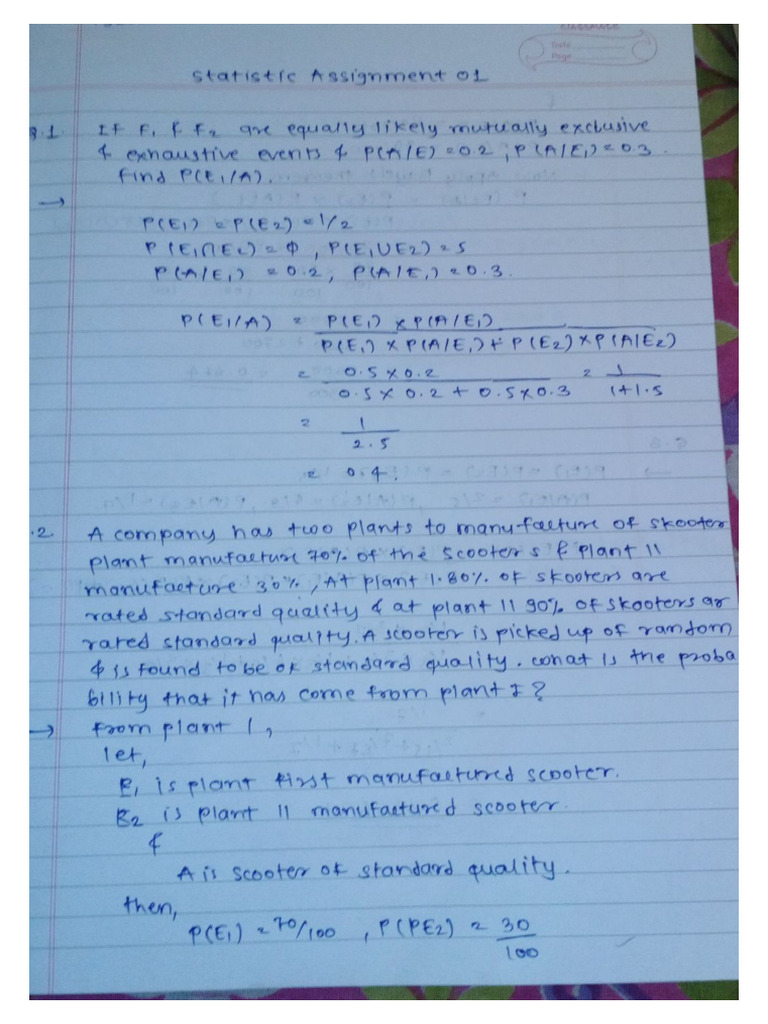 CLASSMATE
Date
Page
Statistic Assignment 01
Q.1 If F1 & F2 are equally likely mutually exclusive
& exhaustive events & P(A/E) = 0.2, P(A/E1) = 0.3.
Find P(E1/A).
→
P(E1) = P(E2) = 1/2
P(E1∩E2) = Φ, P(E1∪E2) = S
P(A/E1) = 0.2, P(A/E1) = 0.3.
P(E1/A) = P(E1) × P(A/E1)
P(E1) × P(A/E1) + P(E2) × P(A/E2)
= 0.5 × 0.2 = 1
0.5 × 0.2 + 0.5 × 0.3 1+1.5
= 1
2.5
= 0.4.
.2. A company has two plants to manu-facture of skooter
plant manufacture 70% of the scooters & plant II
manufacture 30%, At plant 1.80% of skooters are
rated standard quality & at plant II 90% of skooters ar
rated standard quality. A scooter is picked up of random
& is found to be of standard quality. what is the proba
bility that it has come from plant I?
→ from plant I,
let,
E1 is plant first manufactured scooter.
E2 is plant II manufactured scooter.
&
A is scooter of standard quality.
then,
P(E1) = 70/100, P(PE2) = 30
100